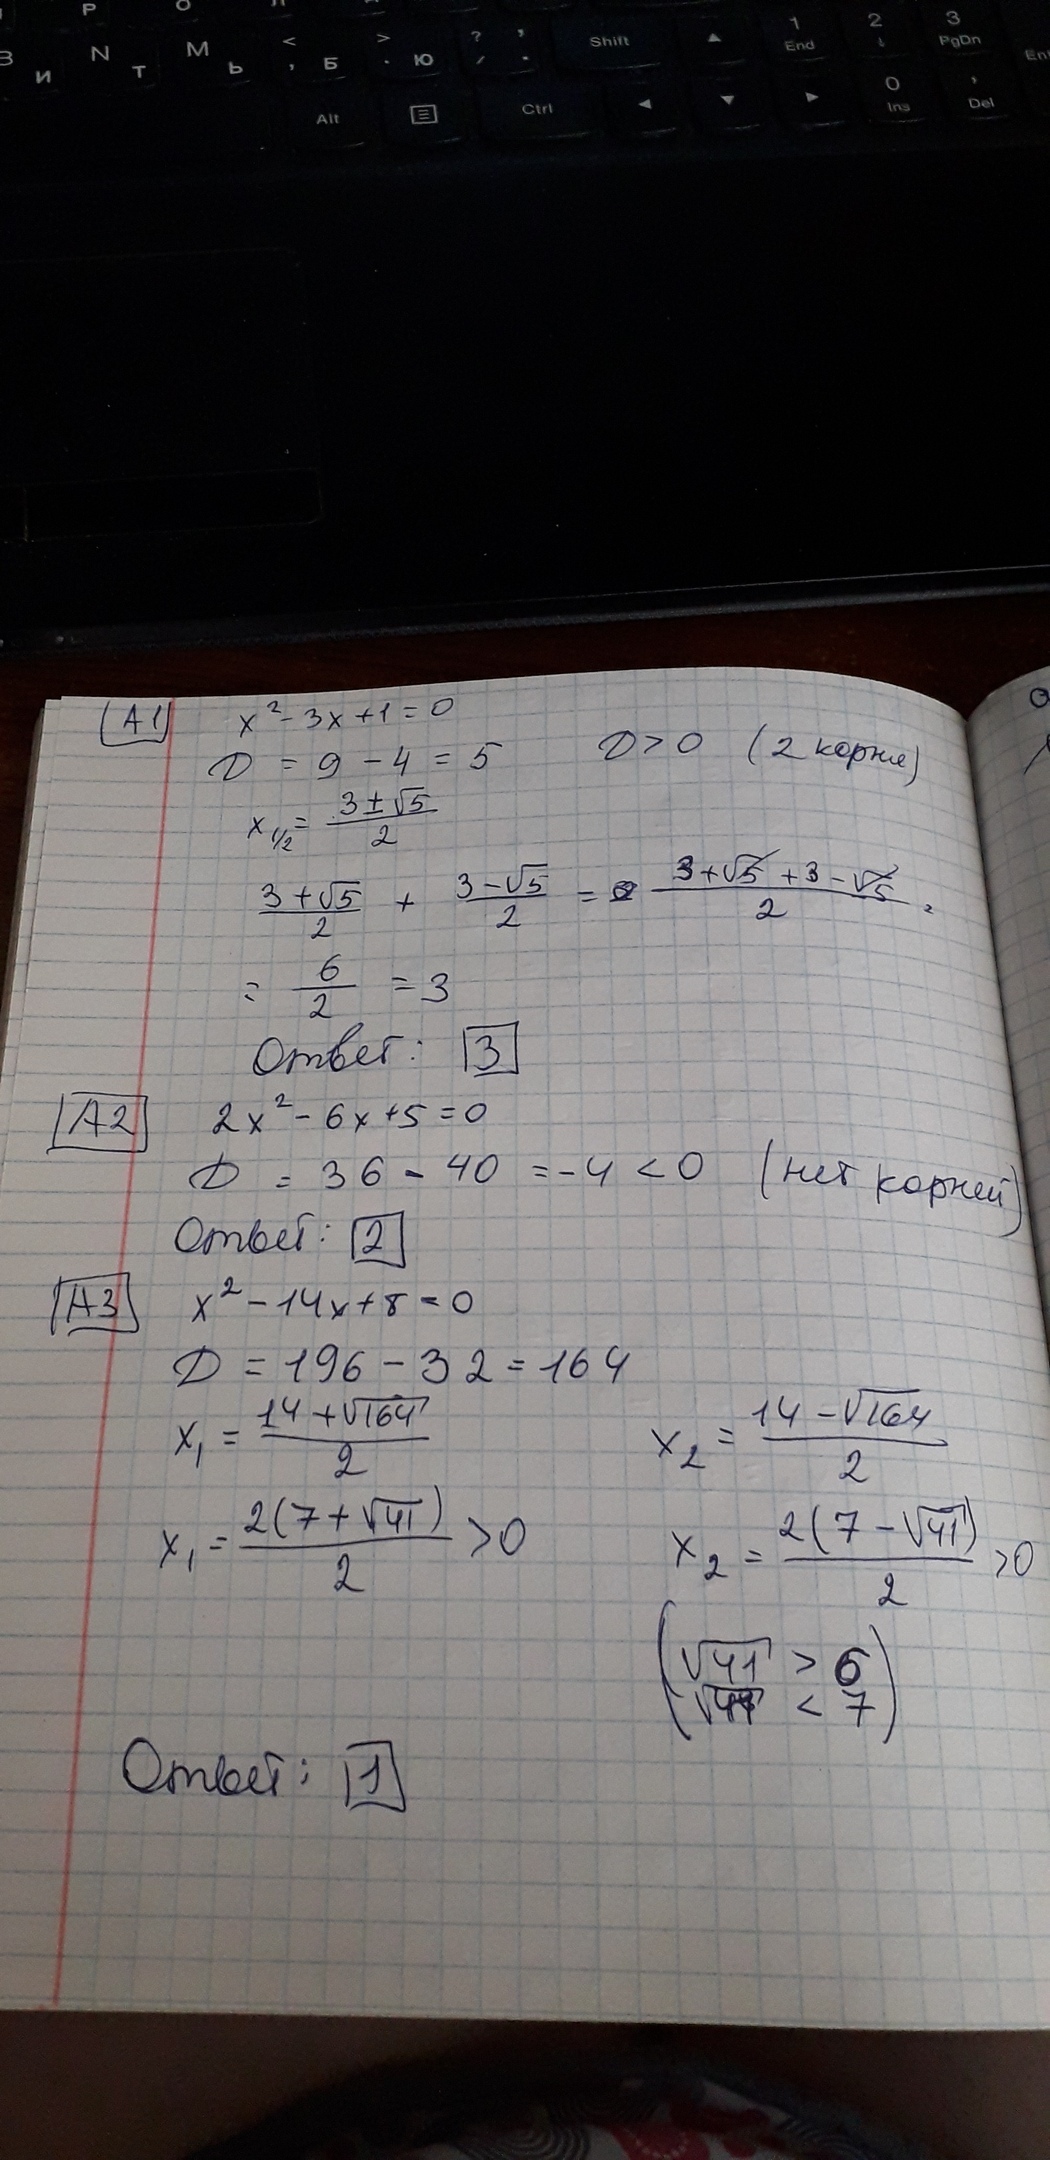 Р О
З И N Т M Ь < , Б > . Ю ? / , . Shift ▲ 1 End 2 ↓ 3 PgDn
Alt Ctrl ◄ ▼ ► 0 Ins , Del
A1 x² - 3x + 1 = 0
D = 9 - 4 = 5 D > 0 (2 корня)
x₁/₂ = (3 ± √5)/2
(3 + √5)/2 + (3 - √5)/2 = (3 + √5 + 3 - √5)/2 =
= 6/2 = 3
Ответ: 3
A2 2x² - 6x + 5 = 0
D = 36 - 40 = -4 < 0 (нет корней)
Ответ: 2
A3 x² - 14x + 8 = 0
D = 196 - 32 = 164
x₁ = (14 + √164)/2 x₂ = (14 - √164)/2
x₁ = 2(7 + √41)/2 > 0 x₂ = 2(7 - √41)/2 > 0
(√41 > 6
√41 < 7)
Ответ: 1